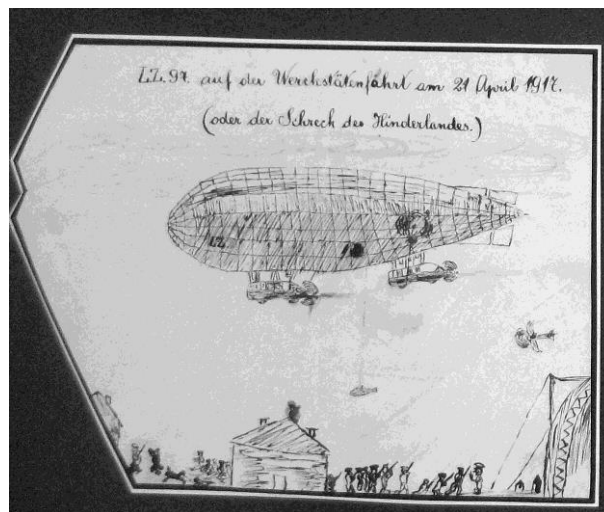 L.Z. 97. auf der Werckstätenfahrt am 21 April 1917.
(oder der Schreck des Hinderlandes.)
LZ